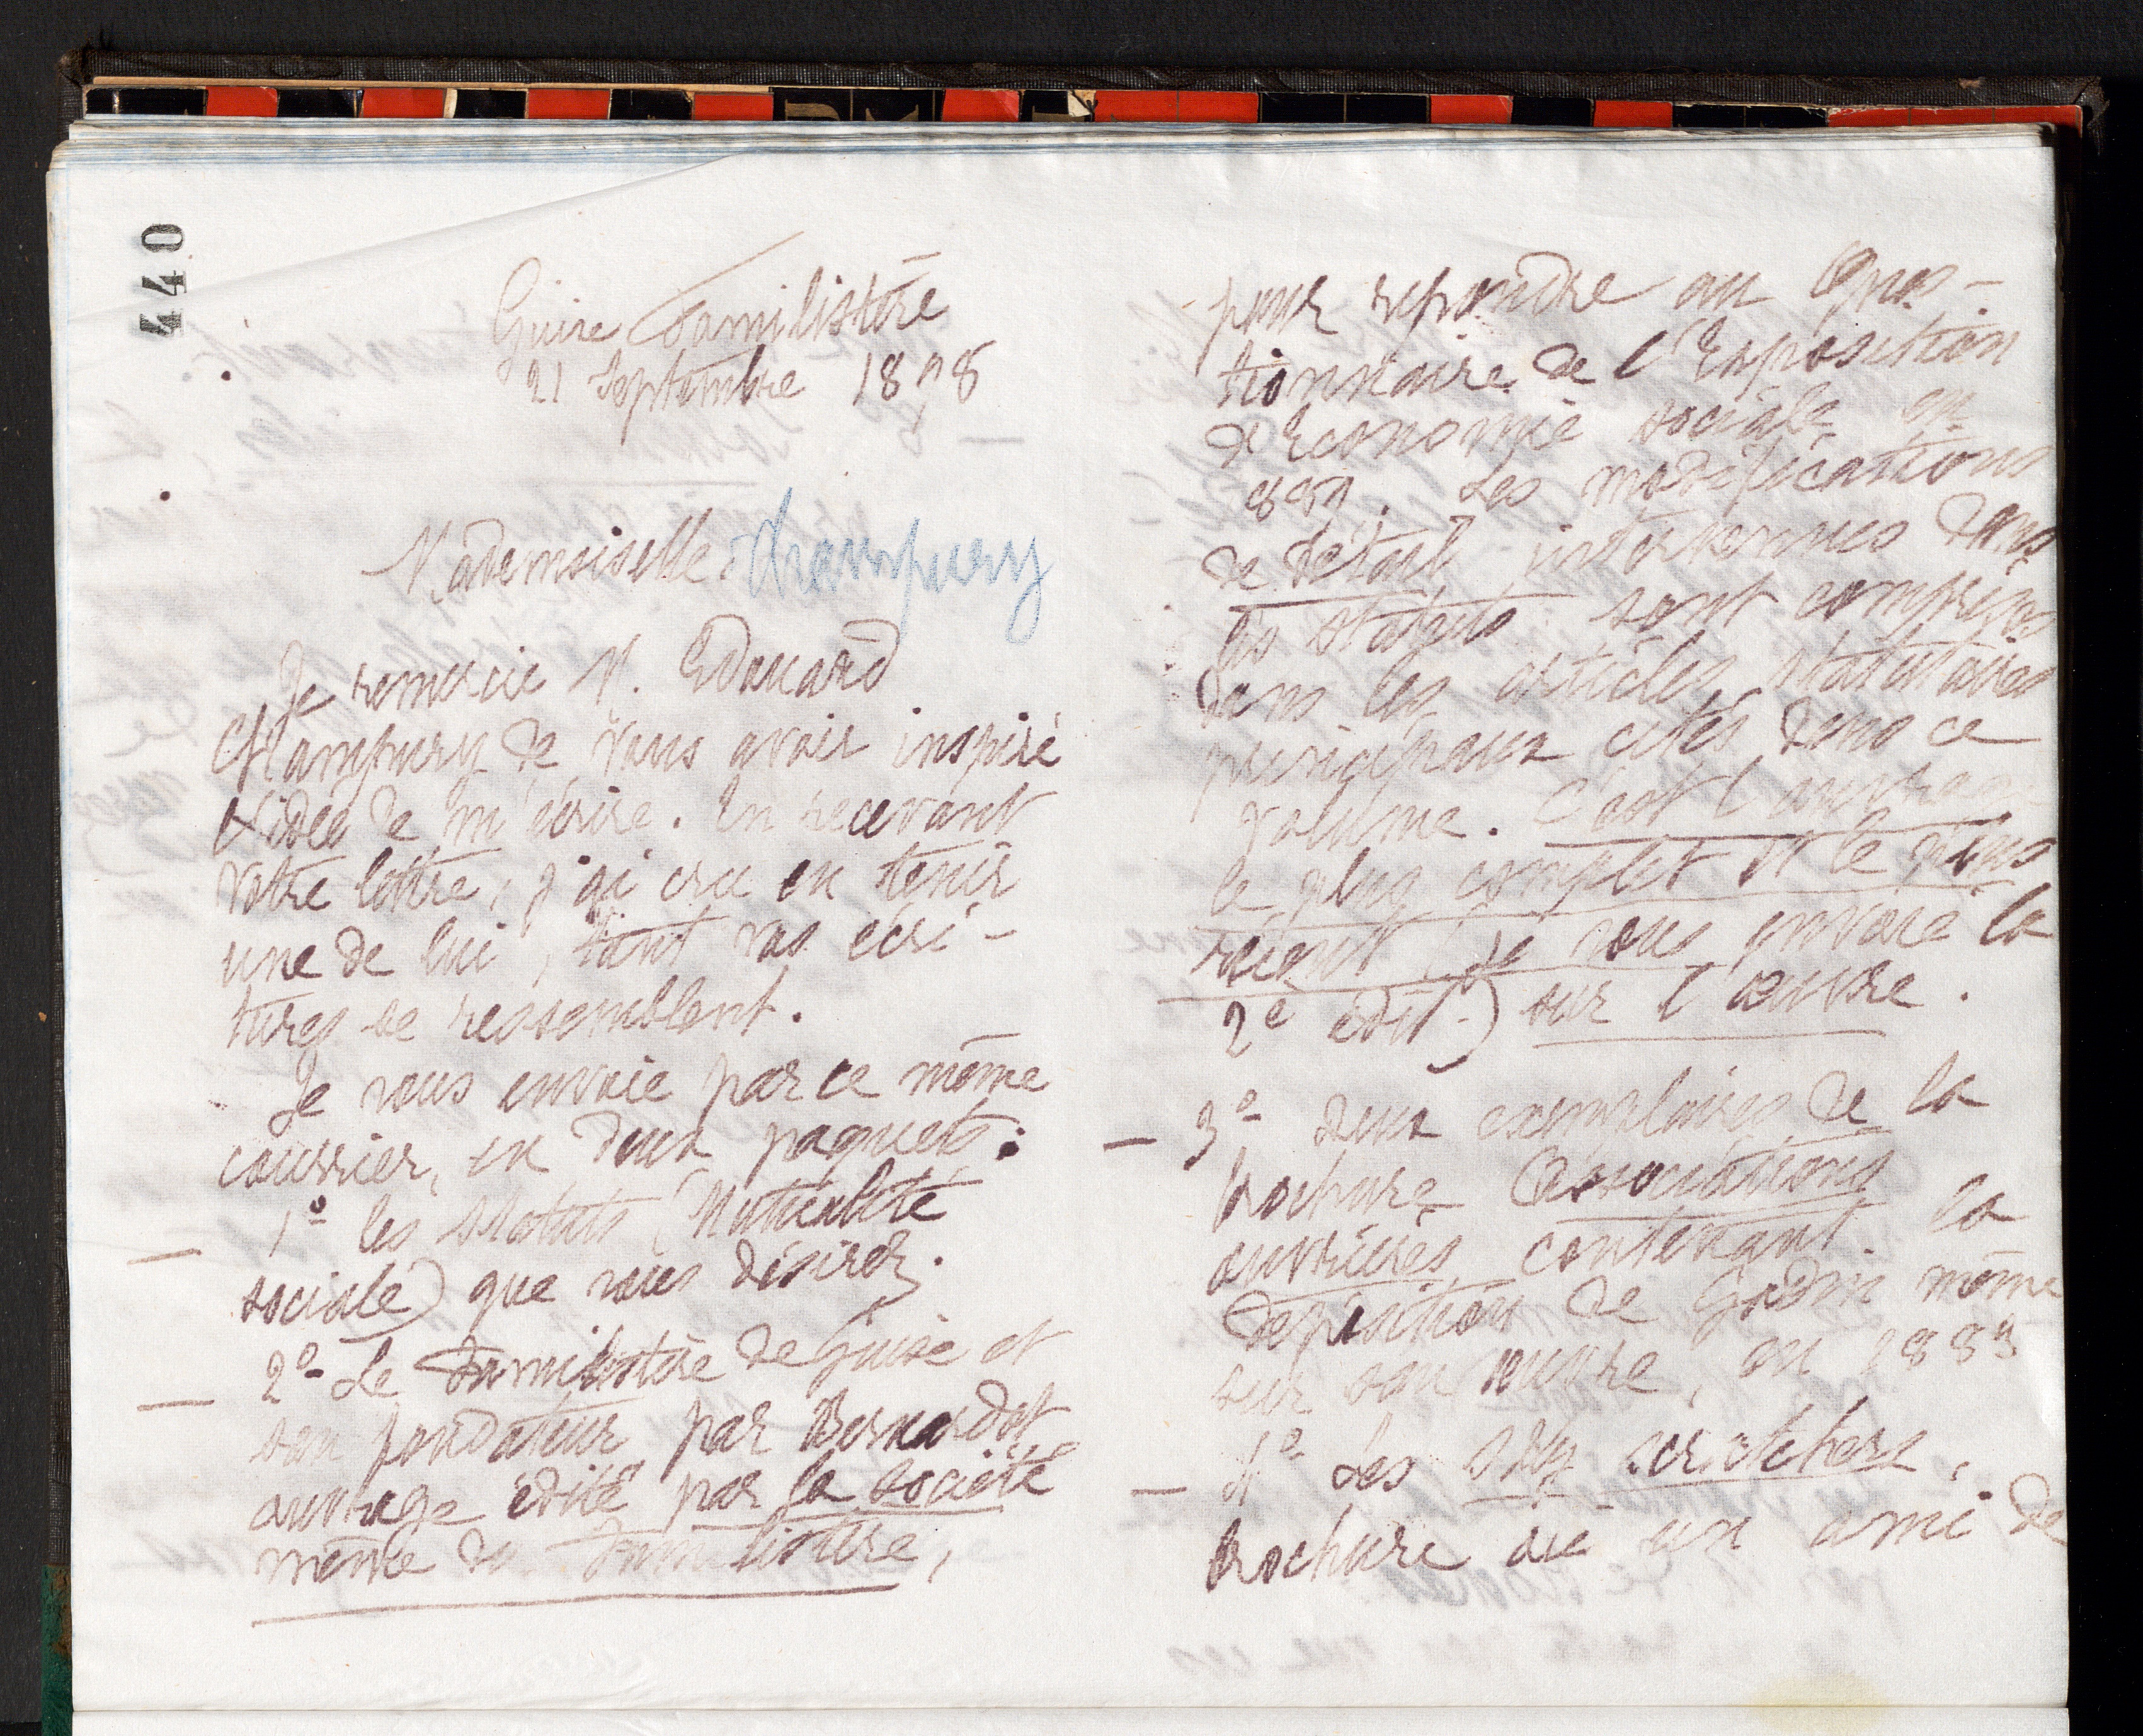 440
Guise Familistère
21 Septembre 1898
Mademoiselle Champury
Je remercie M. Edouard
Champury de vous avoir inspiré
l'idée de m'écrire. En recevant
votre lettre, j'ai cru en tenir
une de lui, tant vos écri-
tures se ressemblent.
Je vous envoie par ce même
courrier, en deux paquets :
— 1º les statuts (Mutualité
sociale) que vous désirez.
— 2º Le Familistère de Guise et
son fondateur par Bernardot
ouvrage édité par la société
même du Familistère,
pour répondre au Ques-
tionnaire de l'Exposition
d'Economie sociale en
1889. Les modifications
de détail intervenues dans
les statuts sont comprises
dans les articles statutaires
principaux cités dans ce
volume. C'est l'ouvrage
le plus complet et le plus
récent (je vous envoie la
2e édit.) sur l'œuvre.
— 3º deux exemplaires de la
brochure Associations
ouvrières contenant la
déposition de Godin même
sur son œuvre, en 1883
— 4º Les Sky scratchers,
brochure où un ami de